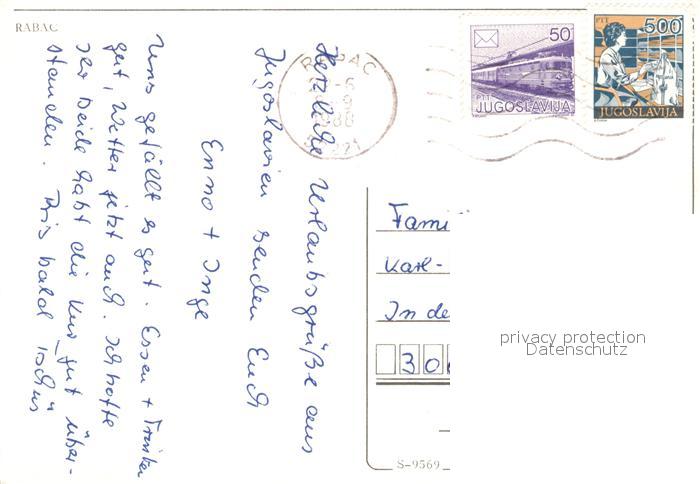 RABAC
Herzliche Urlaubsgrüße aus
Jugoslavien senden Euch
Enno + Inge
Uns gefällt es gut. Essen + Trinken
gut, Wetter jetzt auch. Ich hoffe
Ihr beide habt die Kur gut über-
standen. Bis bald Tschüs
RABAC
-6
88
50
PTT
JUGOSLAVIJA
PTT
500
JUGOSLAVIJA
Fami
Karl-
In de
30
privacy protection
Datenschutz
S-9569